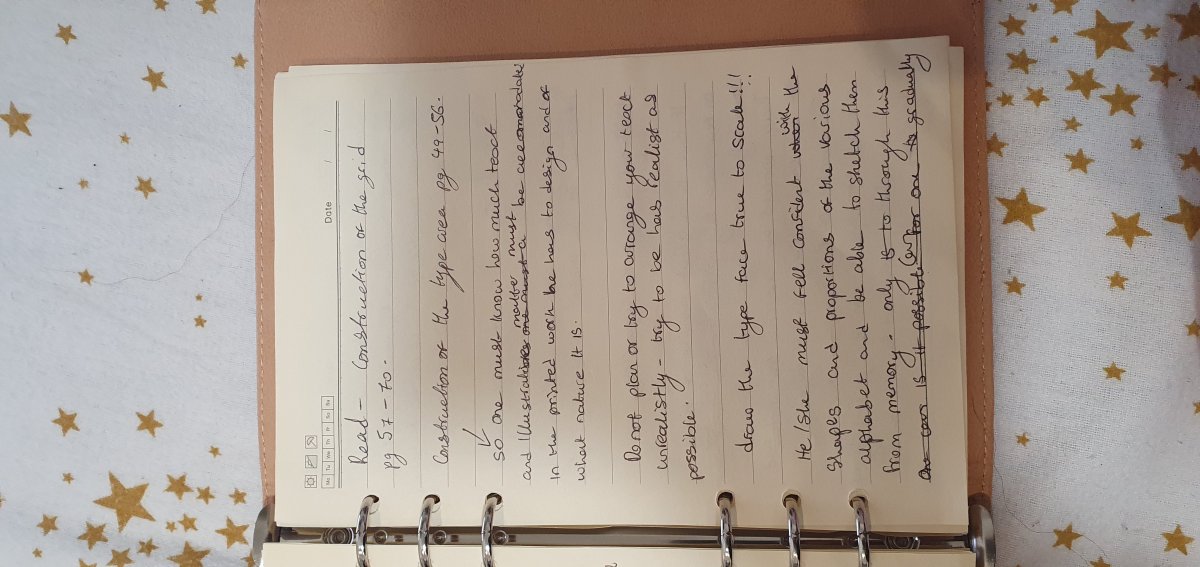 Date / /
Mo Tu We Th Fr Sa Su
Read - Construction of the grid
pg 57 - 70.
Construction of the type area pg 49-56.
so one must know how much teact
matter must
and Illustrations one must a be accomodated
in the printed work he has to design and of
what nature It is.
Do not plan or try to arrange your teact
unrealistly - try to be has realist as
possible.
draw the type face true to scale!!!
He/she must fell confident with the
Shapes and proportions of the various
alphabet and be able to sketch them
from memory. only is to through this
One can is it possible for one to gradually